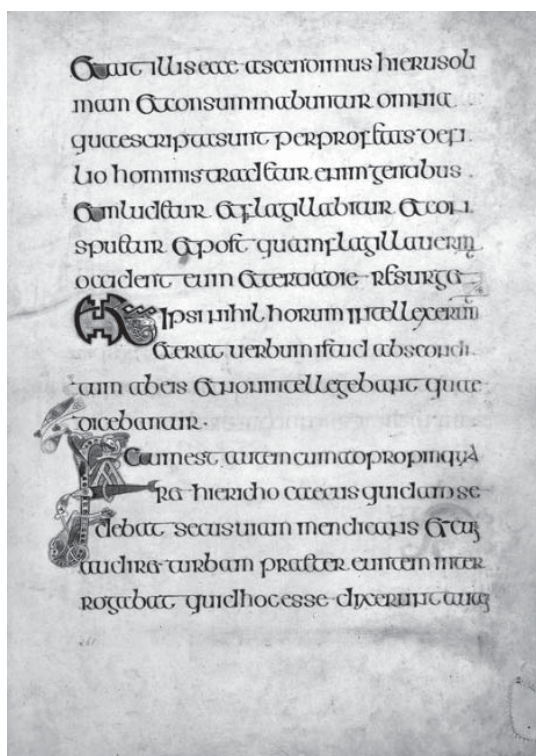 Et ait illis ecce ascendimus hierusoli
mam et consummabuntur omnia
quae scripta sunt per profetas de fi
lio hominis tradetur enim gentibus
et inludetur et flagillabitur et con
spuetur et post quam flagillauerint
occident eum et tertia die resurget
Et ipsi nihil horum intellexerunt
et erat uerbum istud abscondi
tum ab eis et non intellegebant quae
dicebantur·
Factum est autem cum adpropinqua
ret hiericho caecus quidam se
debat secus uiam mendicans et cum
audiret turbam praetereuntem inter
rogabat quid hoc esset dixerunt autem